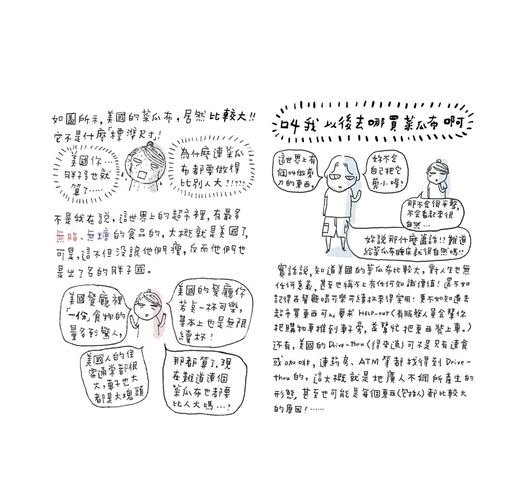 如圖所示,美國的菜瓜布,居然比較大!!
它不是什麼「標準尺寸」!
美國你…
胖子也就
算了……
為什麼連菜瓜
布都要做得
比別人大?!!!!
不是我在說,這世界上的超市裡,有最多
無脂、無糖的食品的,大概就是美國了,
可是,這不但沒讓他們瘦,反而他們也
是出了名的胖子國。
美國餐廳裡
「一份」食物的
量多到驚人,
美國的餐廳你
若點一杯可樂,
基本上也是無限
續杯!
美國人的住
家通常都很
大,車子也大
都是大塊頭
那都算了,現
在難道連個
菜瓜布也都要
比人大嗎…?
叫我以後去哪買菜瓜布啊
這世界上有
個叫做剪
刀的東西,
妳不會
自己把它
剪小喔?
那不會很平整,
不會看起來很
自然…
妳說那什麼蠢話!!難道
給菜瓜布睡床就很自然嗎?!
實話說,知道美國的菜瓜布比較大,對人生也無
任何意義,甚至也稱不上有任何知識價值!還不如
記得在餐廳喝可樂可續杯來得實用!要不如知道去
超市買東西可以要求 HELP-OUT(有服務人員會幫你
把購物車推到車旁,並幫忙把東西裝上車。)
還有,美國的 Drive-thru(得來速)可不是只有速食
或咖啡,連藥局、ATM 等都找得到 Drive-
thru 的,這大概就是地廣人不稠所產生的
形態,甚至也可能是每個東西(包括人)都比較大
的原因?……